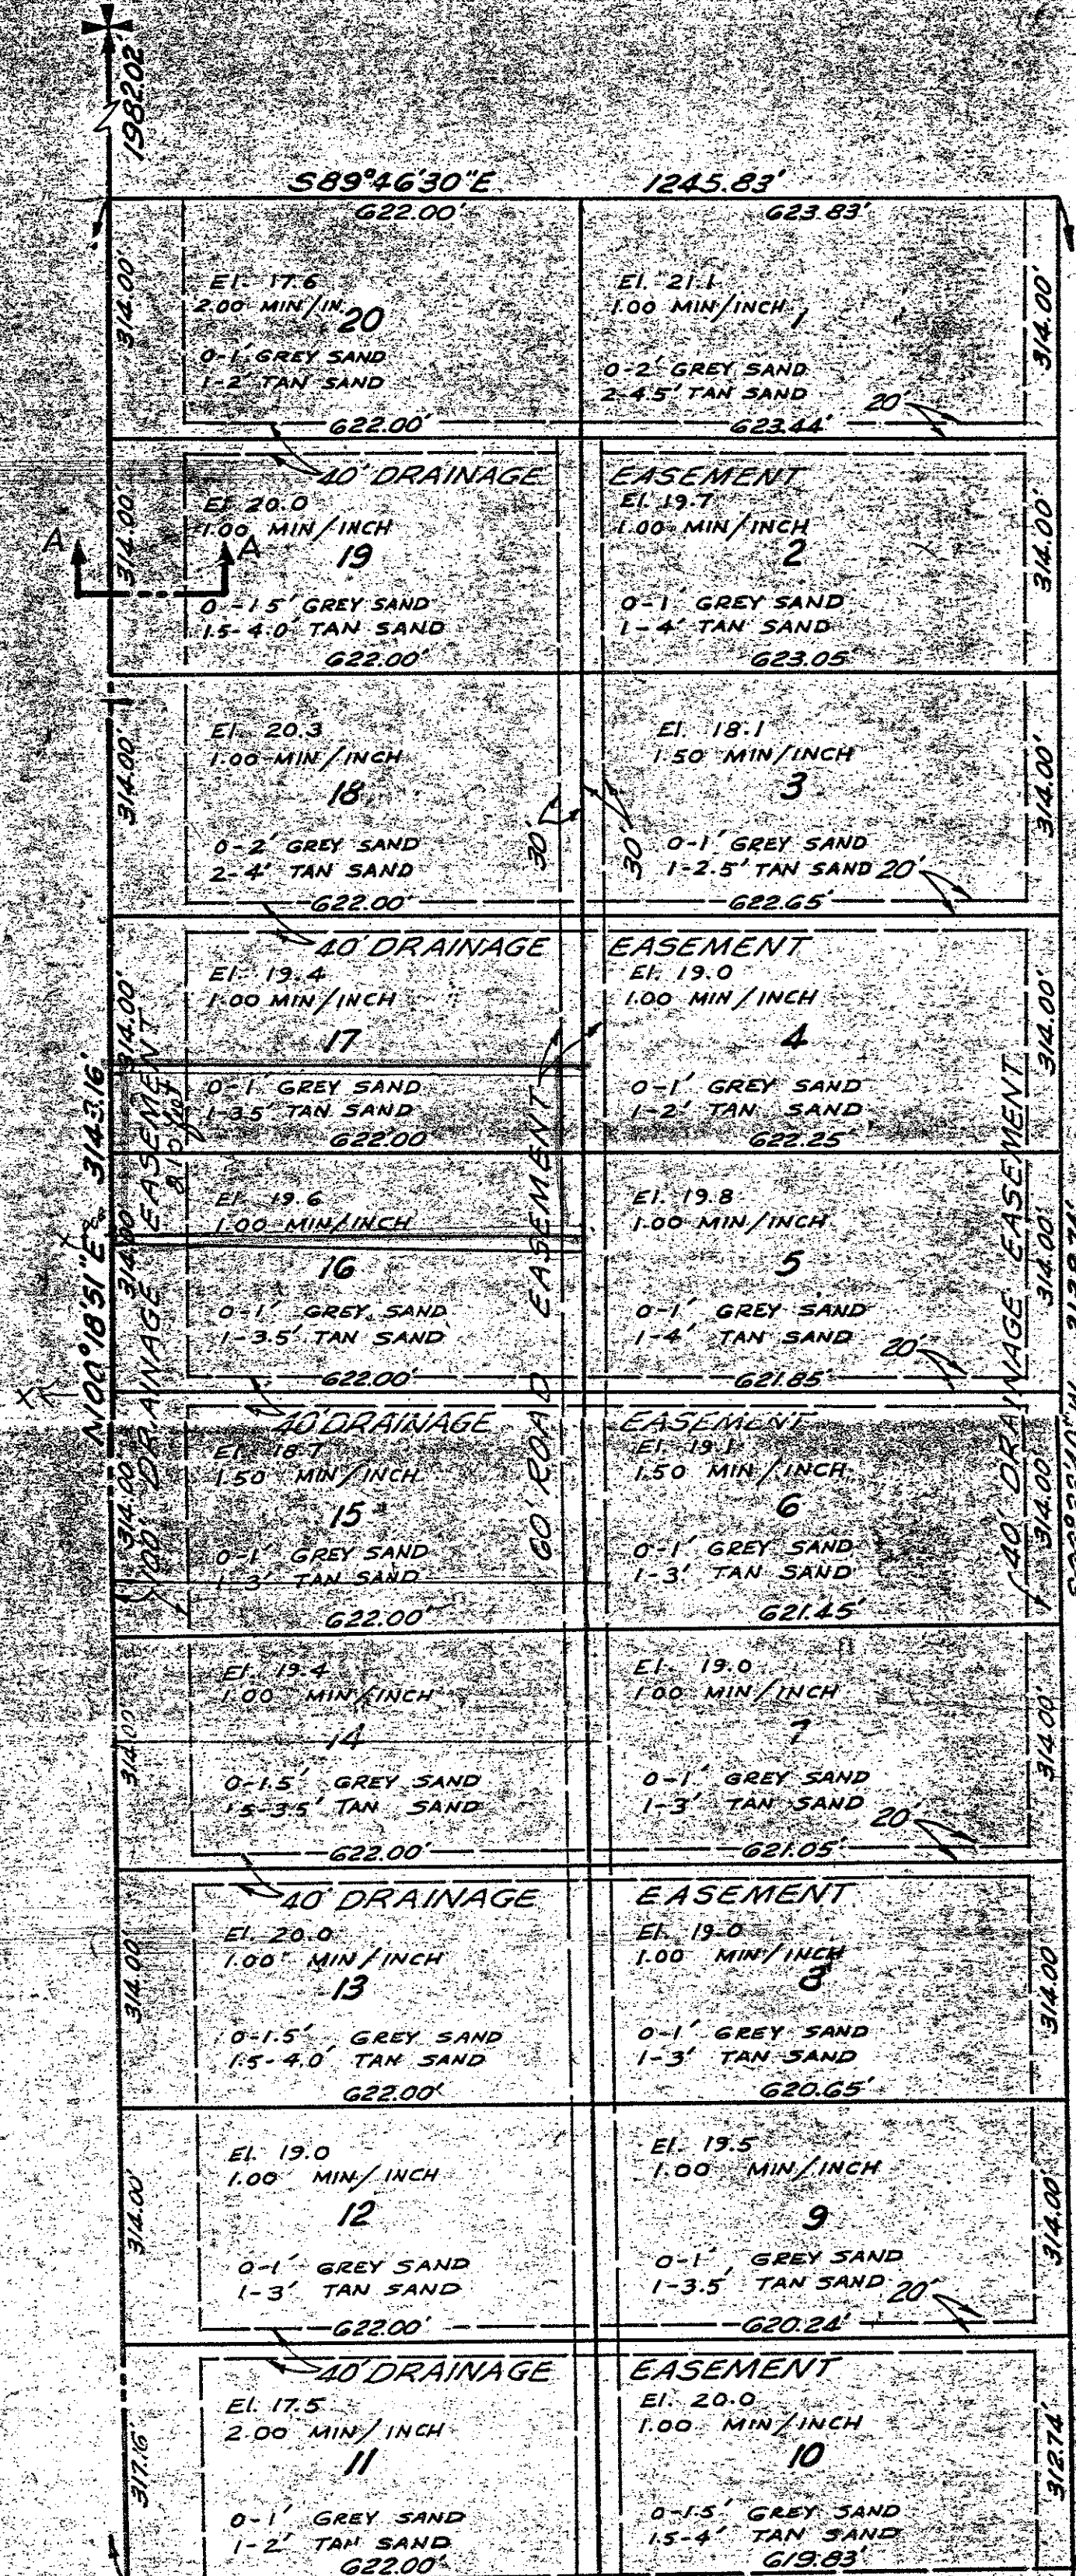 1982.02'
S89°46'30"E 1245.83'
622.00' 623.83'
314.00' 314.00'
El. 17.6
2.00 MIN/IN.
20
0-1' GREY SAND
1-2' TAN SAND
622.00'
El. 21.1
1.00 MIN/INCH
1
0-2' GREY SAND
2-4.5' TAN SAND
20'
623.44'
40' DRAINAGE EASEMENT
314.00' 314.00'
A A
El. 20.0
1.00 MIN/INCH
19
0-1.5' GREY SAND
1.5-4.0' TAN SAND
622.00'
El. 19.7
1.00 MIN/INCH
2
0-1' GREY SAND
1-4' TAN SAND
623.05'
314.00' 314.00'
El. 20.3
1.00 MIN/INCH
18
0-2' GREY SAND
2-4' TAN SAND
622.00'
30' 30'
El. 18.1
1.50 MIN/INCH
3
0-1' GREY SAND
1-2.5' TAN SAND
20'
622.65'
40' DRAINAGE EASEMENT
314.00' 314.00'
El. 19.4
1.00 MIN/INCH
17
0-1' GREY SAND
1-3.5' TAN SAND
622.00
El. 19.0
1.00 MIN/INCH
4
0-1' GREY SAND
1-2' TAN SAND
622.25'
N00°18'51"E 3143.16'
100' DRAINAGE EASEMENT
60' ROAD EASEMENT
40' DRAINAGE EASEMENT
314.00 314.00'
El. 19.6
1.00 MIN/INCH
16
0-1' GREY SAND
1-3.5' TAN SAND
622.00'
El. 19.8
1.00 MIN/INCH
5
0-1' GREY SAND
1-4' TAN SAND
20'
621.85'
40' DRAINAGE EASEMENT
314.00' 314.00'
El. 18.7
1.50 MIN/INCH
15
0-1' GREY SAND
1-3' TAN SAND
622.00'
El. 19.1
1.50 MIN/INCH
6
0-1' GREY SAND
1-3' TAN SAND
621.45'
314.00' 314.00'
El. 19.4
1.00 MIN/INCH
14
0-1.5' GREY SAND
1.5-3.5' TAN SAND
622.00'
El. 19.0
1.00 MIN/INCH
7
0-1' GREY SAND
1-3' TAN SAND
20'
621.05'
40' DRAINAGE EASEMENT
314.00' 314.00
El. 20.0
1.00" MIN/INCH
13
0-1.5' GREY SAND
1.5-4.0' TAN SAND
622.00'
El. 19.0
1.00 MIN/INCH
8
0-1' GREY SAND
1-3' TAN SAND
620.65'
314.00' 314.00'
El. 19.0
1.00 MIN/INCH
12
0-1' GREY SAND
1-3' TAN SAND
622.00'
El. 19.5
1.00 MIN/INCH
9
0-1' GREY SAND
1-3.5' TAN SAND
20'
620.24'
40' DRAINAGE EASEMENT
317.16' 312.74'
El. 17.5
2.00 MIN/INCH
11
0-1' GREY SAND
1-2' TAN SAND
622.00'
El. 20.0
1.00 MIN/INCH
10
0-1.5' GREY SAND
1.5-4' TAN SAND
619.83'